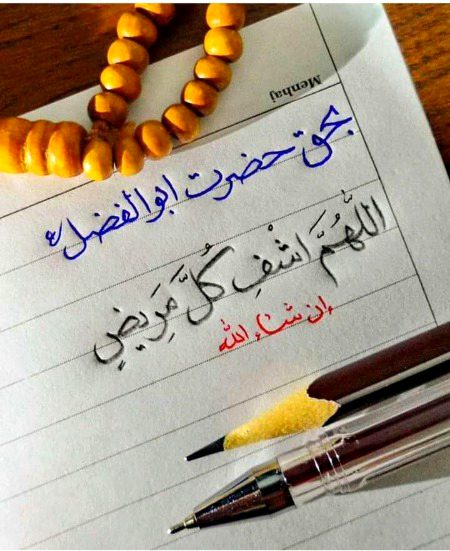 Menhaj
بحق حضرت ابوالفضل؏
اللّٰهُمَّ اشْفِ كُلَّ مَرِيضٍ
إن شاء الله